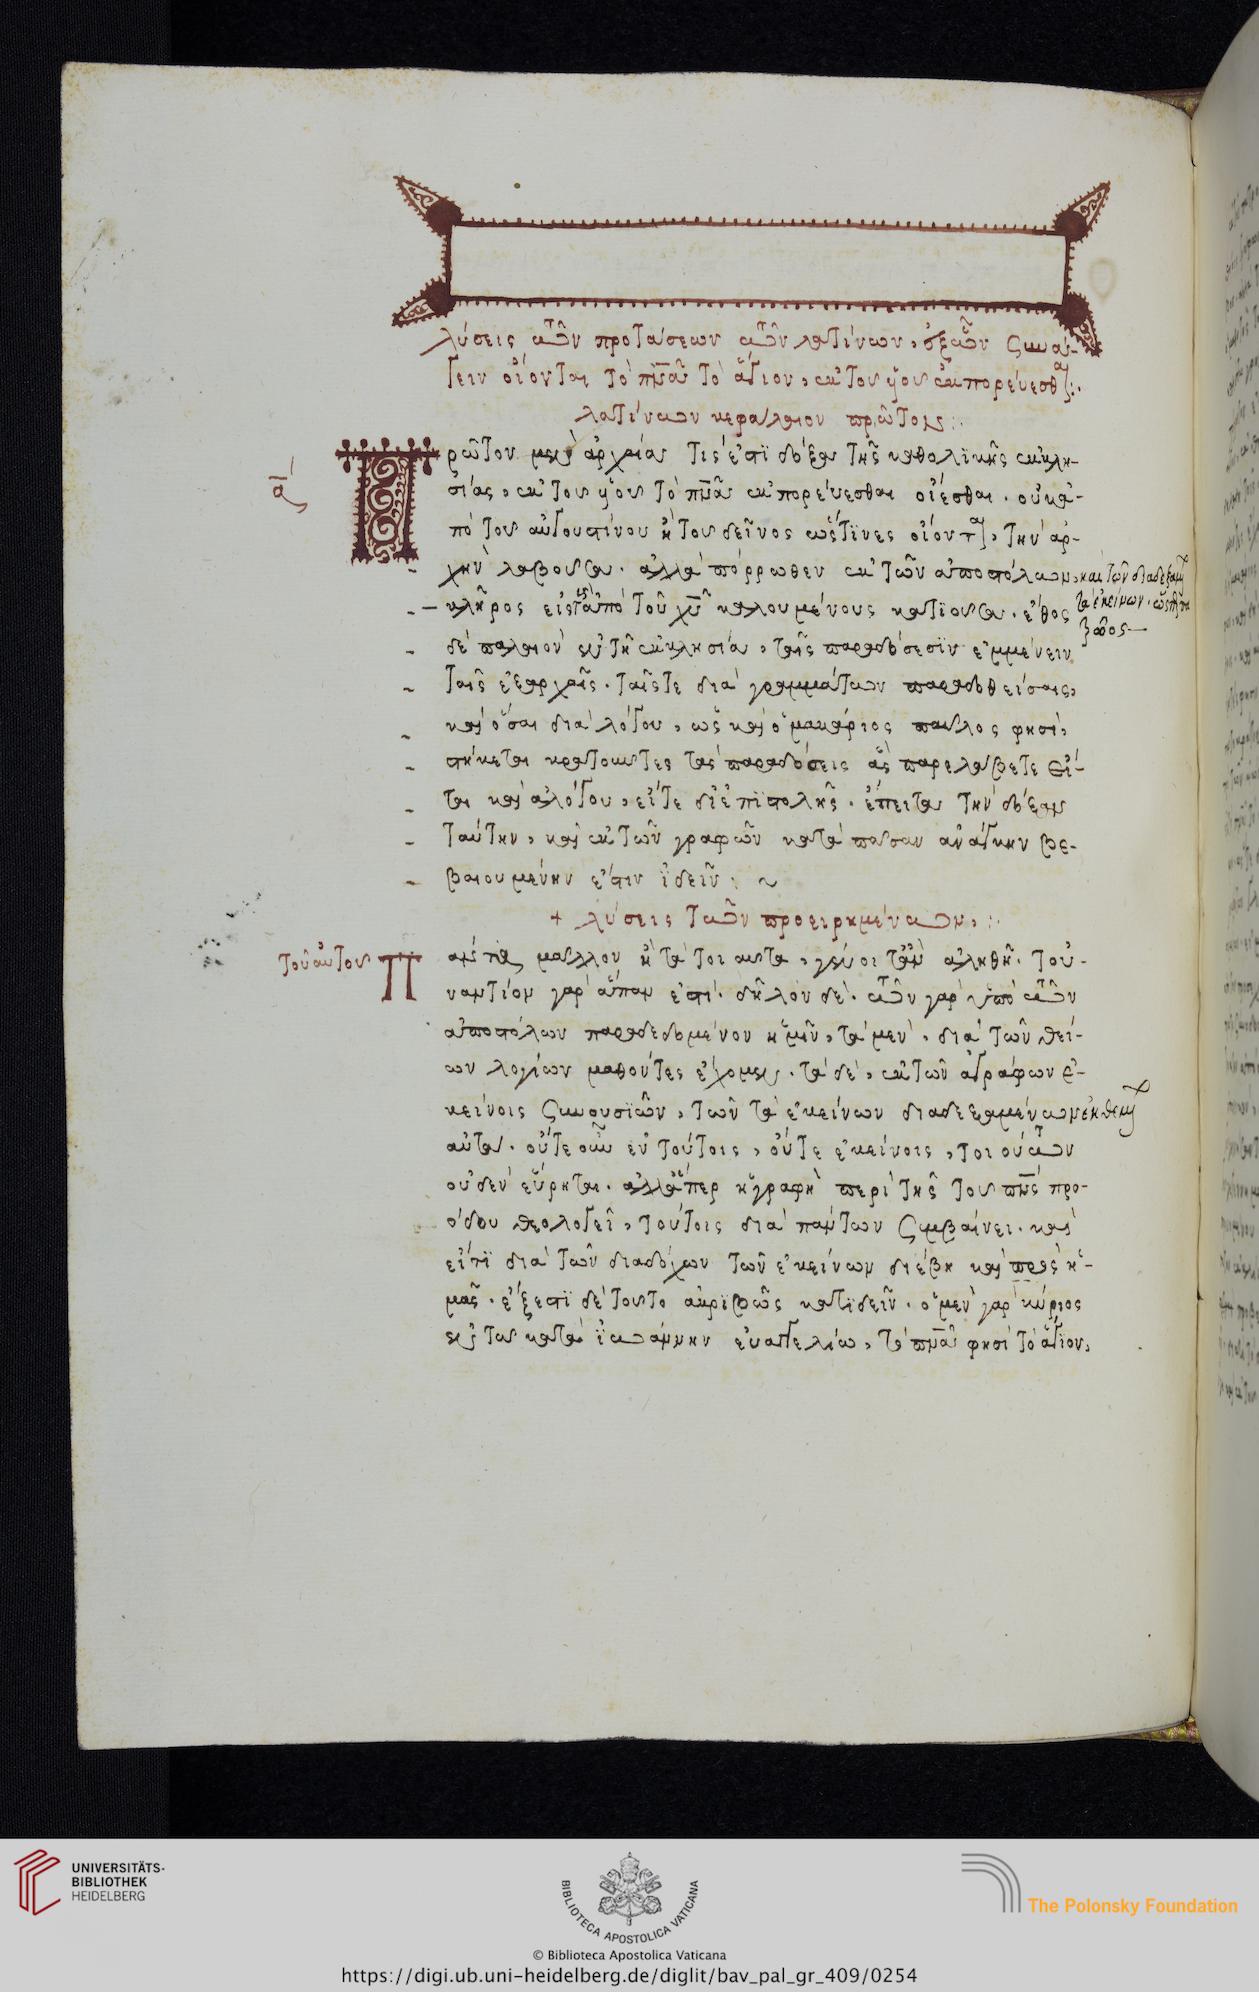 λύσεις τῶν προτάσεων τῶν λατίνων, ἐξ ὧν συνά-
γειν οἴονται τὸ πνᾶ τὸ ἅγιον, ἐκ τοῦ υἱοῦ ἐκπορεύεσθαι:
λατίνων κεφάλαιον πρῶτον:
α
Πρῶτον μὲν ἀρχαία τίς ἐστι δόξα τῆς καθολϊκῆς ἐκκλη-
σίας, ἐκ τοῦ υἱοῦ τὸ πνᾶ ἐκπορεύεσθαι οἴεσθαι. οὐκ ἀ-
πὸ τοῦ αὐγουστίνου ἢ τοῦ δεῖνος ὥς τϊνες οἴονται, τὴν ἀρ-
χὴν λαβοῦσα. ἀλλὰ πόρρωθεν ἐκ τῶν ἀποστόλων, καὶ τῶν διαδεξαμένων
τὰ ἐκείνων.
κλῆρος εἰς τοὺς ἀπὸ τοῦ χυ καλουμένους κατϊοῦσα. ἔθος
δὲ παλαιὸν ἐν τῆ ἐκκλησία, ταῖς παραδόσεσϊν ἐμμένειν
ταῖς ἐξαρχαῖς. ταῖς τε διὰ γραμμάτων παραδοθείσαις,
καὶ ὅσαι διὰ λόγου, ὡς καὶ ὁ μακάριος παῦλος φησὶ,
στήκεται κρατοῦντες τὰς παραδόσεις ἃς παρελάβετε εἴ-
ται καὶ ἀλόγου, εἴτε δι' ἐπϊστολῆς. ἔπειτα τὴν δόξαν
ταύτην, καὶ ἐκ τῶν γραφῶν κατὰ πᾶσαν ἀνάγκην βε-
βαιουμένην ἔστιν ἰδεῖν:
+ λύσεις τῶν προειρημένων:
τοῦ αὐτοῦ
Πάντα μᾶλλον ἢ τὰ τοιαῦτα, γένοιτ' ἂν ἀληθῆ. τοὐ-
ναντίον γὰρ ἅπαν ἐστί. δῆλον δέ. τῶν γὰρ ὑπὸ τῶν
ἀποστόλων παραδεδομένον ἡμῖν, τὰ μὲν, διὰ τῶν θεί-
ων λογίων μαθόντες ἔχομεν. τὰ δὲ, ἐκ τῶν ἀγράφων ἐ-
κείνοις συνουσϊῶν, τῶν τὰ ἐκείνων διαδεξαμένων ἐκθεμένων
αὐτά. οὔτε οὖν ἐν τούτοις, οὔτε ἐκείνοις, τοιοῦτον
οὐδὲν εὕρηται. ἀλλ' ἅπερ ἡ γραφὴ περὶ τῆς τοῦ πνς προ-
όδου θεολογεῖ, τούτοις διὰ πάντων συμβαίνει. καὶ
εἴτϊ διὰ τῶν διαδόχων τῶν ἐκείνων διέβη καὶ πρὸς ἡ-
μᾶς. ἔξεστϊ δὲ τοῦτο ἀκρϊβῶς κατϊδεῖν. ὁ μὲν γὰρ κύριος
ἐν τῶ κατὰ ἰωάννην εὐαγγελίω, τὸ πνᾶ φησὶ τὸ ἅγϊον,
UNIVERSITÄTS-
BIBLIOTHEK
HEIDELBERG
BIBLIOTECA APOSTOLICA VATICANA
The Polonsky Foundation
© Biblioteca Apostolica Vaticana
https://digi.ub.uni-heidelberg.de/diglit/bav_pal_gr_409/0254